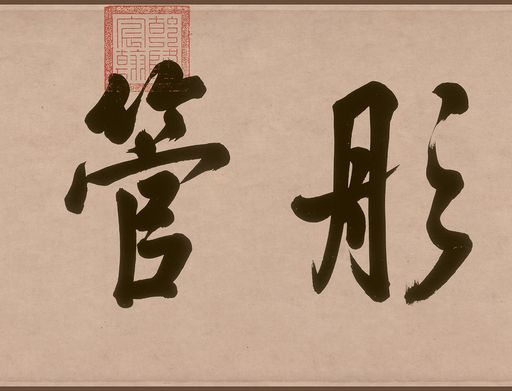 彤管
乾隆宸翰